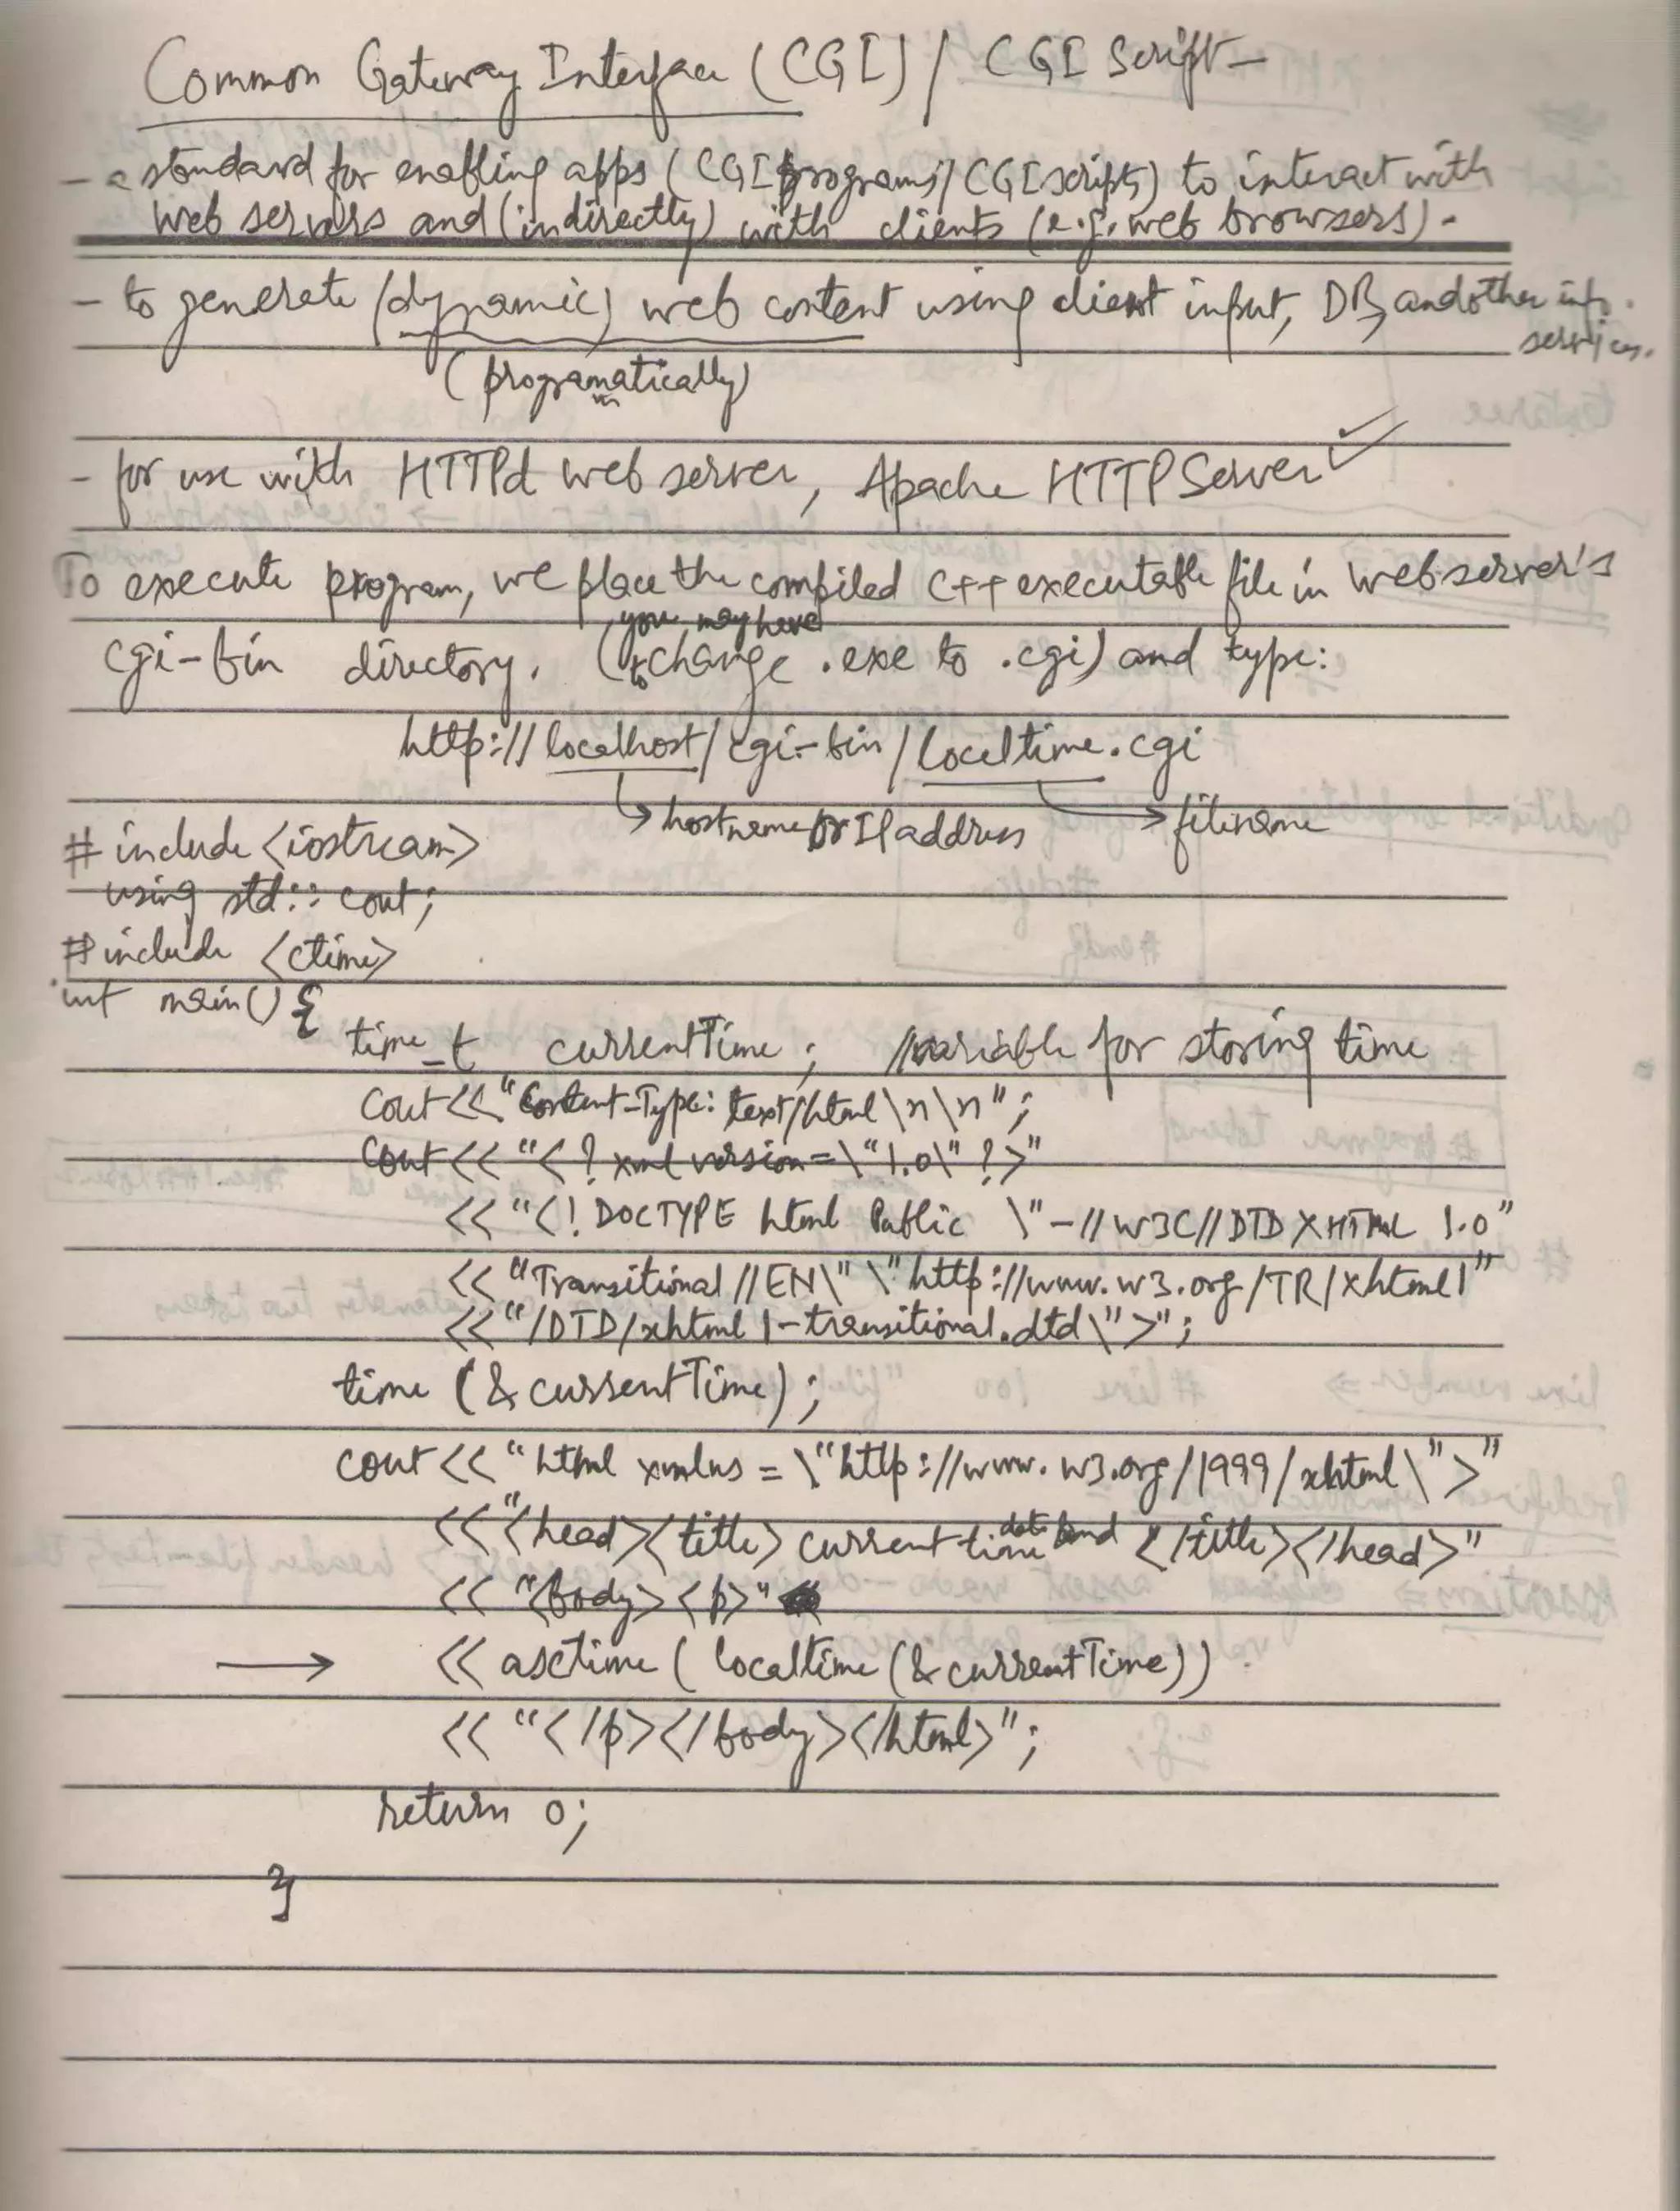 Common Gateway Interface (CGI) / CGI Script -
- a standard for enabling apps (CGI programs / CGI scripts) to interact with
web servers and (indirectly) with clients (e.g. web browsers).
- to generate (dynamic) web content using client input, DB, and other info.
services.
(programatically)
m
- for use with HTTPd web server, Apache HTTP Server ✓
To execute program, we place the compiled C++ executable file in webserver's
you may have
cgi-bin directory. (to change .exe to .cgi) and type:
http://localhost/cgi-bin/localtime.cgi
↳ hostname or IP address → filename
# include <iostream>
using std:: cout;
# include <ctime>
int main() {
time_t currentTime; //variable for storing time
cout << "Content-Type: text/html\n\n";
cout << "<?xml version=\"1.0\"?>"
<< "<!DOCTYPE html Public \"-//W3C//DTD XHTML 1.0"
<< "Transitional//EN\" \"http://www.w3.org/TR/xhtml1"
<< "/DTD/xhtml1-transitional.dtd\">";
time (&currentTime);
cout << "html xmlns = \"http://www.w3.org/1999/xhtml\">"
<< "<head><title> current time date and </title></head>"
<< "<body><p>"
→ << asctime ( localtime (&currentTime))
<< "</p></body></html>";
return 0;
}